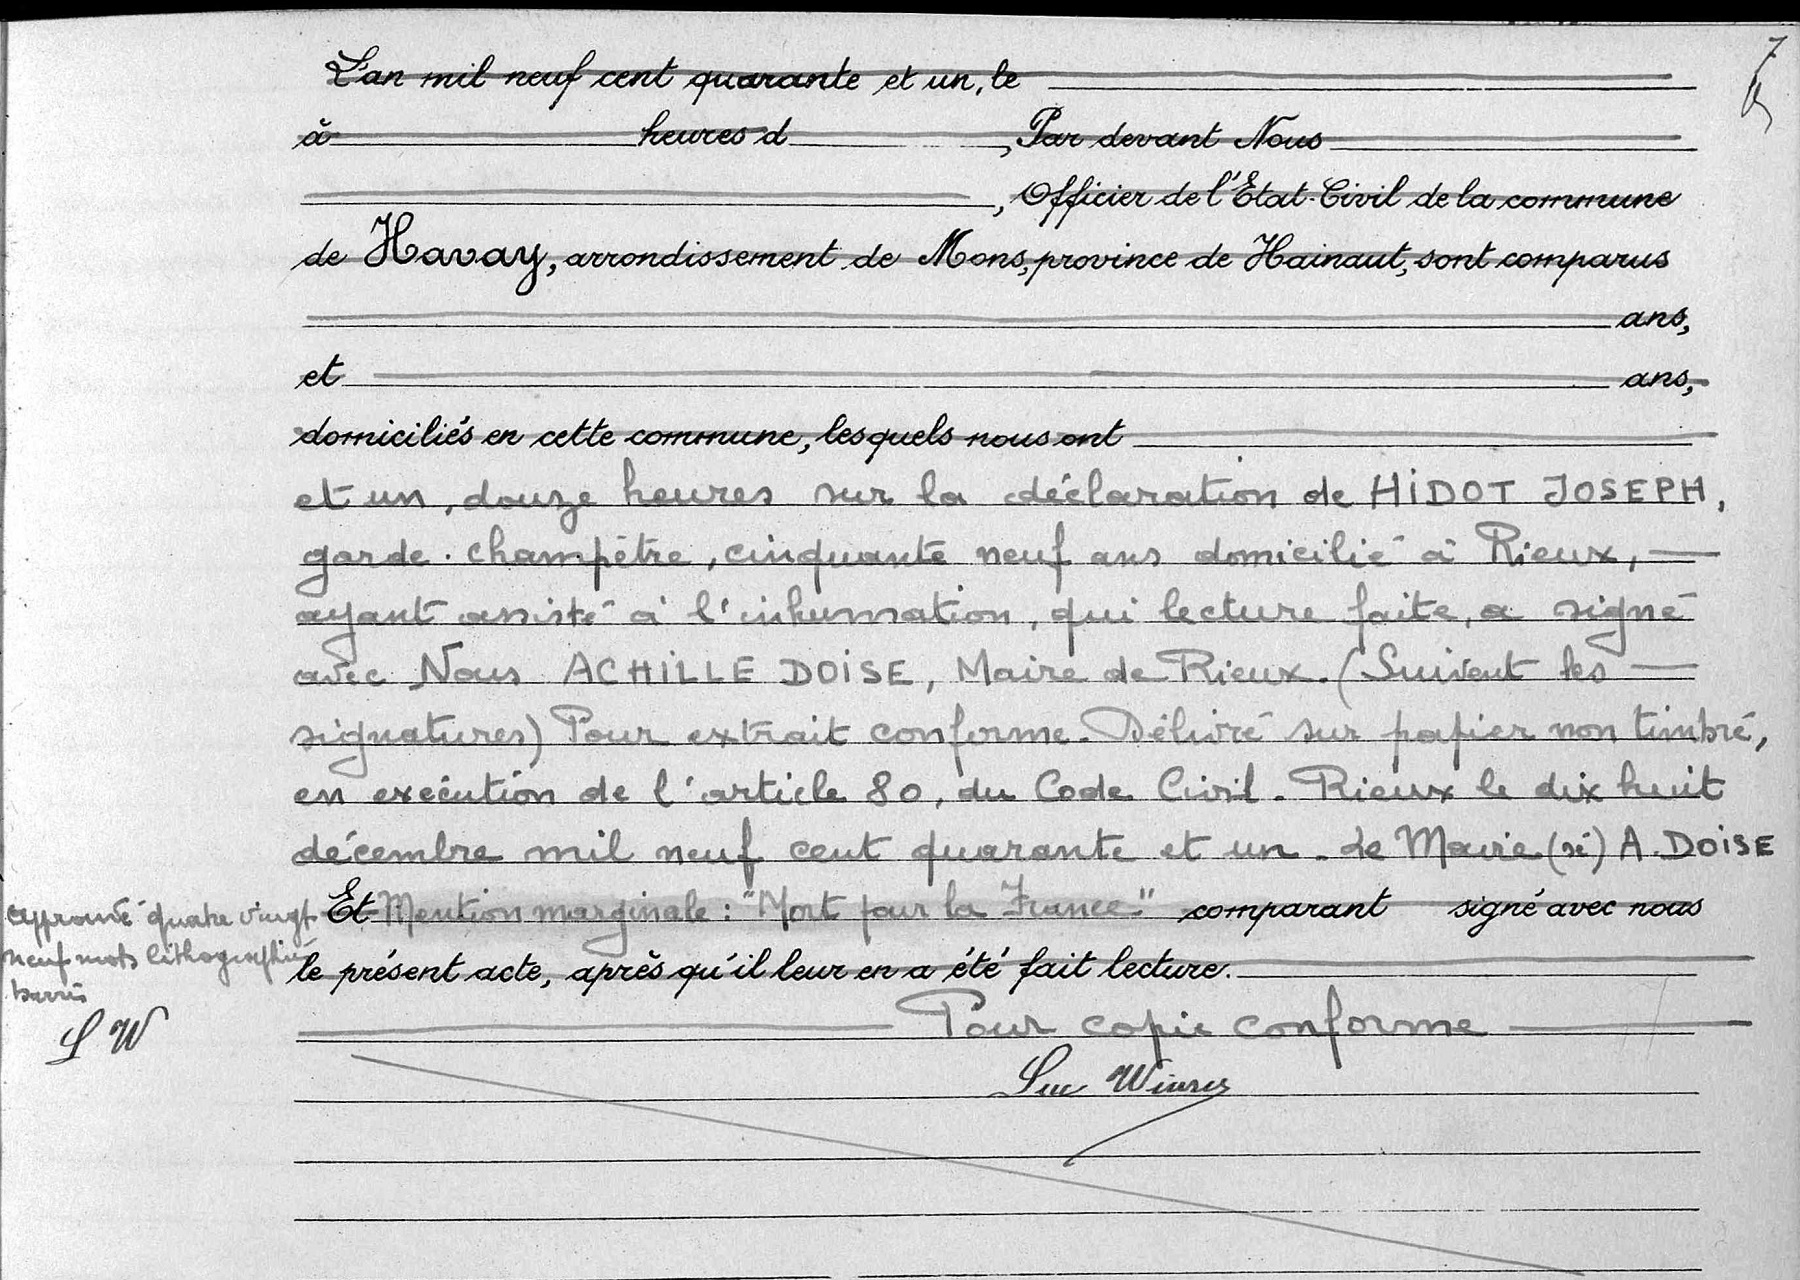 7
L'an mil neuf cent quarante et un, le
à heures d , Par devant Nous
, Officier de l'Etat-Civil de la commune
de Havay, arrondissement de Mons, province de Hainaut, sont comparus
ans,
et ans,
domiciliés en cette commune, lesquels nous ont
et un, douze heures sur la déclaration de HIDOT JOSEPH,
garde-champêtre, cinquante neuf ans domicilié à Rieux,
ayant assisté à l'inhumation, qui lecture faite, a signé
avec Nous ACHILLE DOISE, Maire de Rieux. (Suivent les
signatures) Pour extrait conforme. Délivré sur papier non timbré,
en exécution de l'article 80, du Code Civil. Rieux le dix huit
décembre mil neuf cent quarante et un. Le Maire (sé) A. DOISE
Et Mention marginale : "Mort pour la France" comparant signé avec nous
le présent acte, après qu'il leur en a été fait lecture.
Pour copie conforme
Luc
approuvé quatre vingt
neuf mots lithographiés
barrés
L W